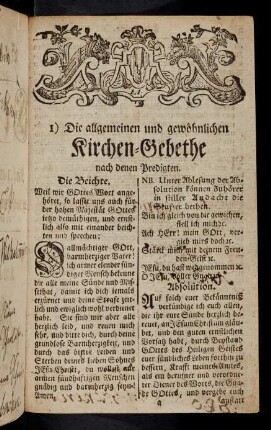 1) Die allgemeinen und gewöhnlichen
Kirchen-Gebethe
nach denen Predigten.
Die Beichte.
Weil wir GOttes Wort ange-
höret, so lasst uns auch für
der hohen Majestät GOttes
jetzo demüthigen, und ernst-
lich also mit einander beich-
ten und sprechen:
Allmächtiger GOtt,
barmherziger Vater!
ich armer elender sün-
diger Mensch bekenne
dir alle meine Sünde und Mis-
sethat, damit ich dich iemals
erzürnet und deine Strafe zeit-
lich und ewiglich wohl verdienet
habe. Sie sind mir aber alle
herzlich leid, und reuen mich
sehr, und bitte dich, durch deine
grundlose Barmherzigkeit, und
durch das bittre Leiden und
Sterben deines lieben Sohnes
JEsu Christi, du wollest mir
armen sündhaften Menschen
gnädig und barmherzig seyn,
Amen.
NB. Unter Ablesung der Ab-
solution können Zuhörer
in stiller Andacht die
Seufzer bethen.
Bin ich gleich von dir gewichen,
stell ich mich ꝛc.
Ach HErr mein GOtt, ver-
gieb mirs doch ꝛc.
Stärk mich mit deinem Freu-
den-Geist ꝛc.
JEsu, du hast weggenommen ꝛc.
Absolution.
Auf solch euer Bekänntniß
verkündige ich euch allen,
die ihr eure Sünde herzlich be-
reuet, an JEsum Christum gläu-
bet, und den guten ernstlichen
Vorsatz habt, durch Beystand
GOttes des Heiligen Geistes
euer sündliches Leben forthin zu
bessern, Krafft meines Amtes,
als ein beruffener und verordne-
ter Diener des Worts, die Gna-
de GOttes, und vergebe euch